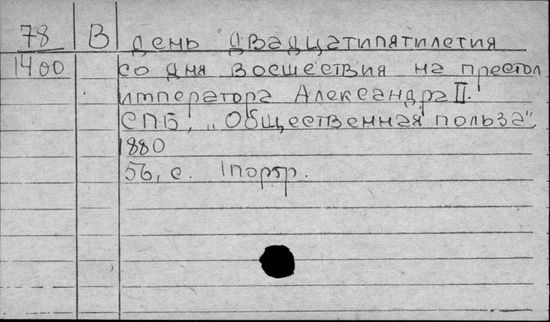 78 В день двадцатипятилетия
1400 со дня восшествия на престол
императора Александра II.
СПБ, „Общественная польза",
1880
56, с. 1 портр.